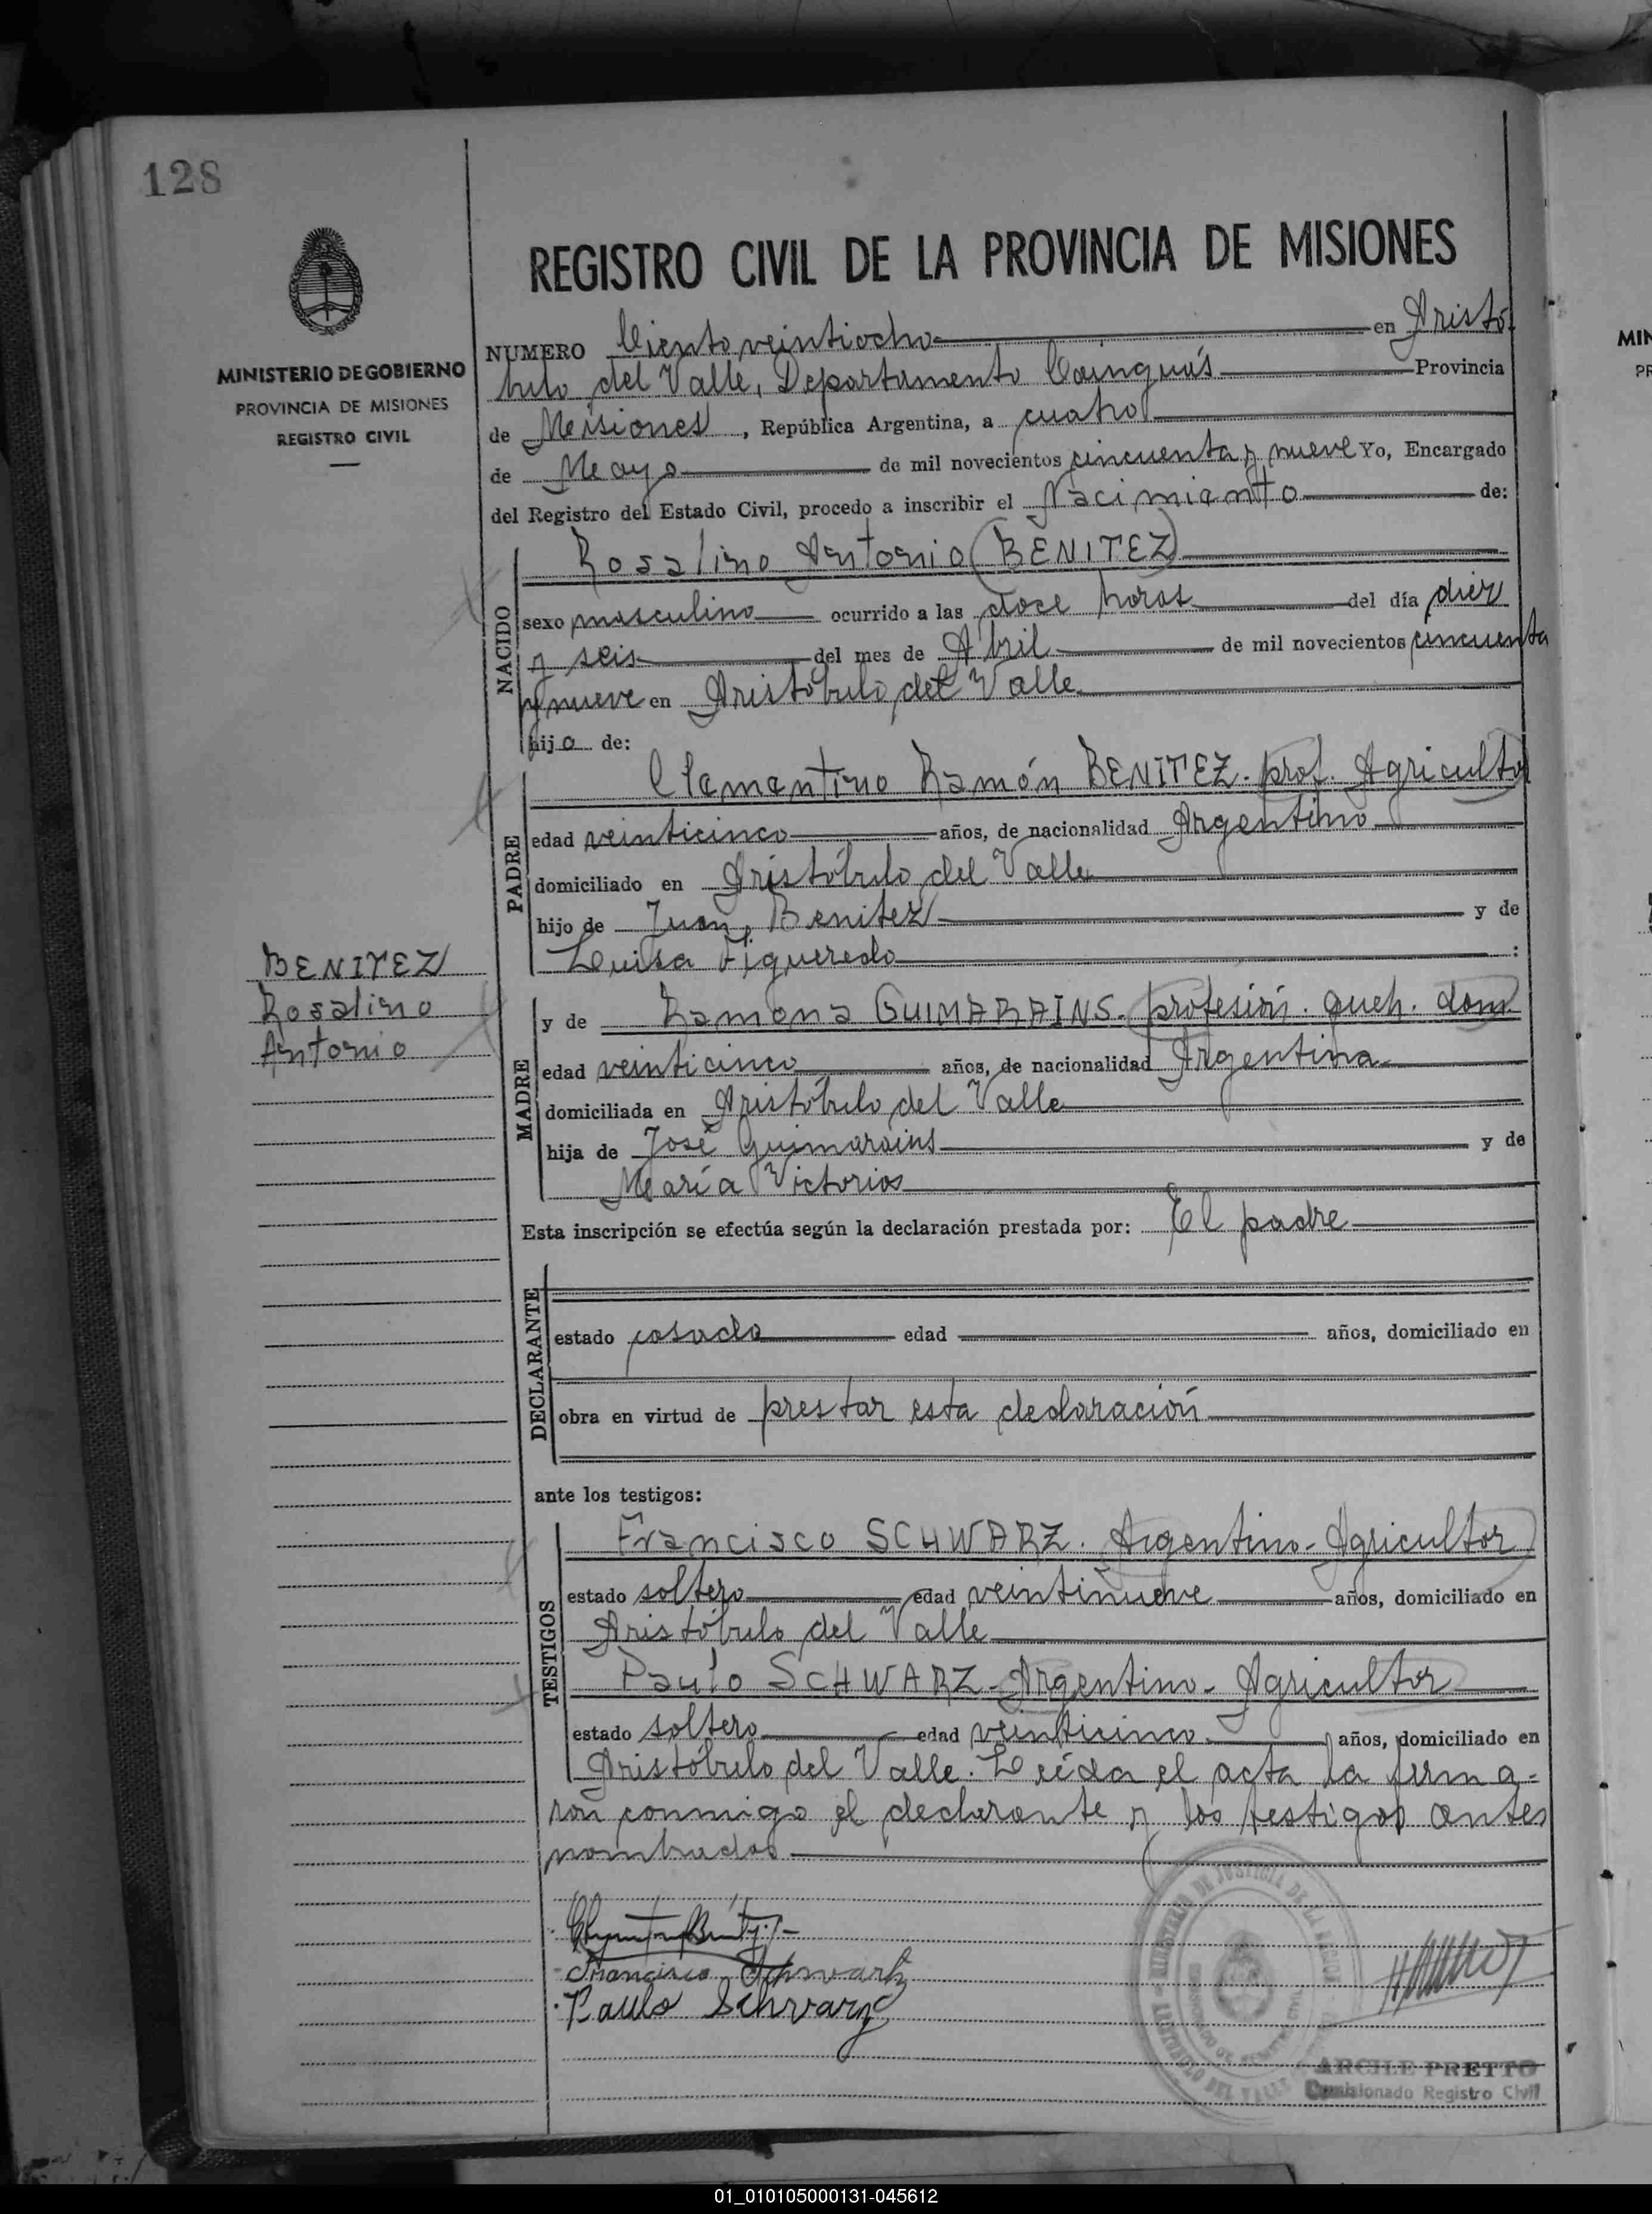 128
MINISTERIO DE GOBIERNO
PROVINCIA DE MISIONES
REGISTRO CIVIL
REGISTRO CIVIL DE LA PROVINCIA DE MISIONES
NUMERO Ciento veintiocho en Aristó-
bulo del Valle, Departamento Cainguás Provincia
de Misiones, República Argentina, a cuatro
de Mayo de mil novecientos cincuenta y nueve Yo, Encargado
del Registro del Estado Civil, procedo a inscribir el Nacimiento de:
NACIDO
Rosalino Antonio (BENITEZ)
sexo masculino ocurrido a las doce horas del día diez
y seis del mes de Abril de mil novecientos cincuenta
y nueve en Aristóbulo del Valle
hijo de:
PADRE
Clementino Ramón BENITEZ. prof. Agricultor
edad veinticinco años, de nacionalidad Argentino
domiciliado en Aristóbulo del Valle
hijo de Juan Benitez y de
Luisa Figueredo :
BENITEZ
Rosalino
Antonio
MADRE
y de Ramona GUIMARAINS. profesión. queh. dom.
edad veinticinco años, de nacionalidad Argentina
domiciliada en Aristóbulo del Valle
hija de José Guimarains y de
María Victorios
Esta inscripción se efectúa según la declaración prestada por: El padre
DECLARANTE
estado casado edad años, domiciliado en
obra en virtud de prestar esta declaración
ante los testigos:
TESTIGOS
Francisco SCHWARZ. Argentino - Agricultor
estado soltero edad veintinueve años, domiciliado en
Aristóbulo del Valle
Paulo SCHWARZ - Argentino - Agricultor
estado soltero edad veinticinco años, domiciliado en
Aristóbulo del Valle. Leída el acta la firma-
ron conmigo el declarante y los testigos antes
nombrados
Francisco Schwarz
Paulo Schvarz
MINISTERIO DE JUSTICIA DE LA NACION
ARISTOBULO DEL VALLE
ARCILE PRETTO
Comisionado Registro Civil
01_010105000131-045612